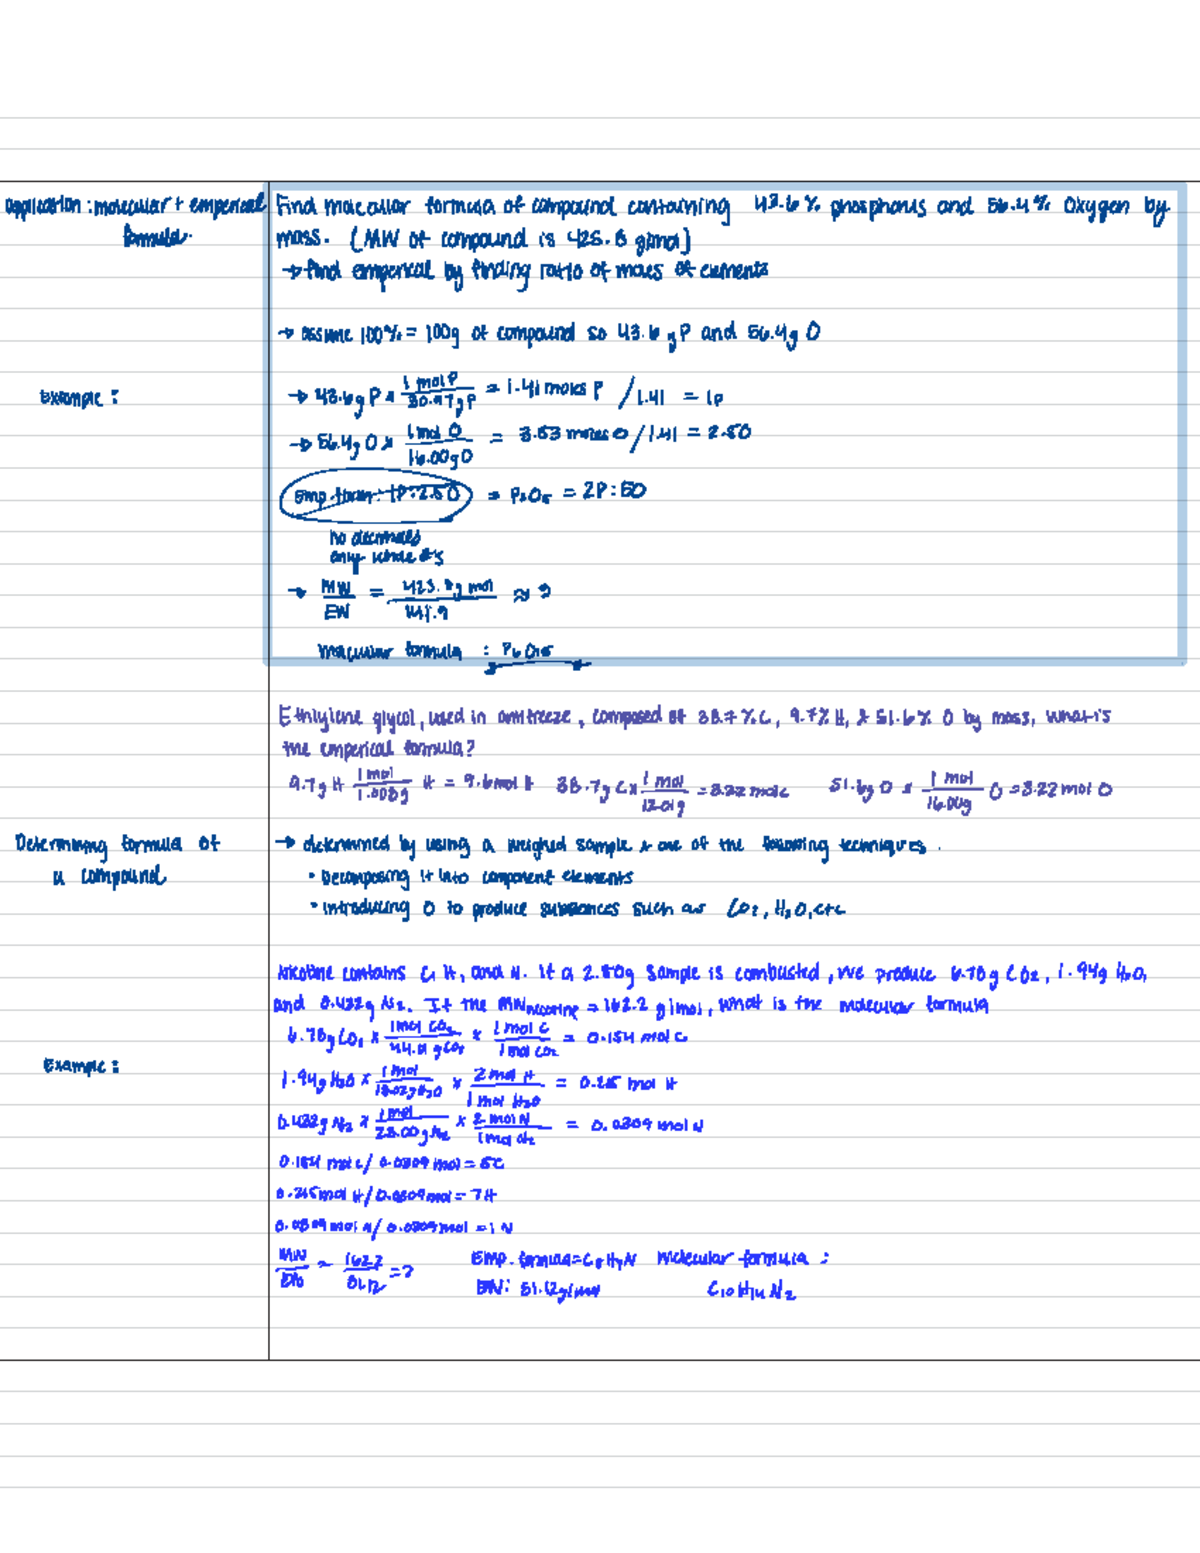 Application: molecular + emperical
formula.
Find molecular formula of compound containing 43.6% phosphorus and 56.4% Oxygen by
mass. (MW of compound is 425.8 g/mol)
→ find emperical by finding ratio of moles of elements
→ assume 100% = 100g of compound so 43.6 g P and 56.4g O
Example:
→ 43.6g P × 1 mol P / 30.97g P = 1.41 moles P / 1.41 = 1P
→ 56.4g O × 1 mol O / 16.00g O = 3.53 moles O / 1.41 = 2.5O
emp. form: 1P:2.5O = P₂O₅ = 2P:5O
no decimals
only whole #s
→ MW / EW = 425.8g mol / 141.9 ≈ 3
molecular formula : P₆O₁₅
Ethlylene glycol, used in antifreeze, composed of 38.7% C, 9.7% H, & 51.6% O by mass, what is
the emperical formula?
9.7g H 1 mol / 1.008g H = 9.6mol H 38.7g C × 1 mol / 12.01g = 3.22 mol C 51.6g O × 1 mol / 16.00g O = 3.22 mol O
Determining formula of
a compound
→ determined by using a weighed sample & one of the following techniques.
• Decomposing it into component elements
• introducing O to produce substances such as CO₂, H₂O, etc
Nicotine contains C, H, and N. If a 2.50g sample is combusted, we produce 6.78g CO₂, 1.94g H₂O,
and 0.432g N₂. If the MW nicotine = 162.2 g/mol, what is the molecular formula
6.78g CO₂ × 1 mol CO₂ / 44.01 g CO₂ × 1 mol C / 1 mol CO₂ = 0.154 mol C
Example:
1.94g H₂O × 1 mol / 18.02g H₂O × 2 mol H / 1 mol H₂O = 0.215 mol H
0.432g N₂ × 1 mol / 28.00g N₂ × 2 mol N / 1 mol = 0.0309 mol N
0.154 mol C / 0.0309 mol = 5C
0.215mol H / 0.0309mol = 7H
0.0309 mol N / 0.0309mol = 1 N
MW / EW = 162.2 / 81.12 = 2 Emp. formula = C₅H₇N Molecular formula :
EW: 81.12g/mol C₁₀H₁₄N₂